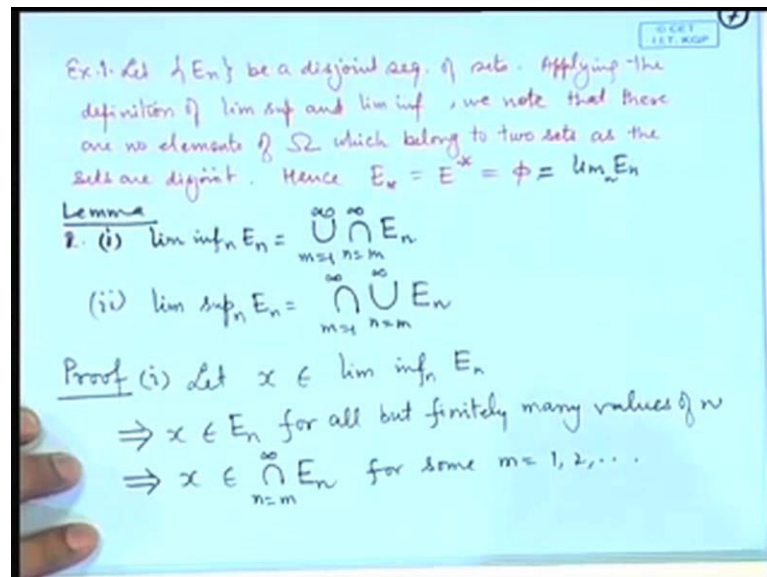 7
© CET
I.I.T. KGP
Ex.1. Let {En} be a disjoint seq. of sets. Applying the
definition of lim sup and lim inf, we note that there
are no elements of Ω which belong to two sets as the
sets are disjoint. Hence E_* = E^* = φ = lim_n En
Lemma
1. (i) lim inf_n E_n = ∞∪m=1 ∞∩n=m E_n
(ii) lim sup_n E_n = ∞∩m=1 ∞∪n=m E_n
Proof (i) Let x ∈ lim inf_n E_n
⇒ x ∈ E_n for all but finitely many values of n
⇒ x ∈ ∞∩n=m E_n for some m = 1, 2, ....